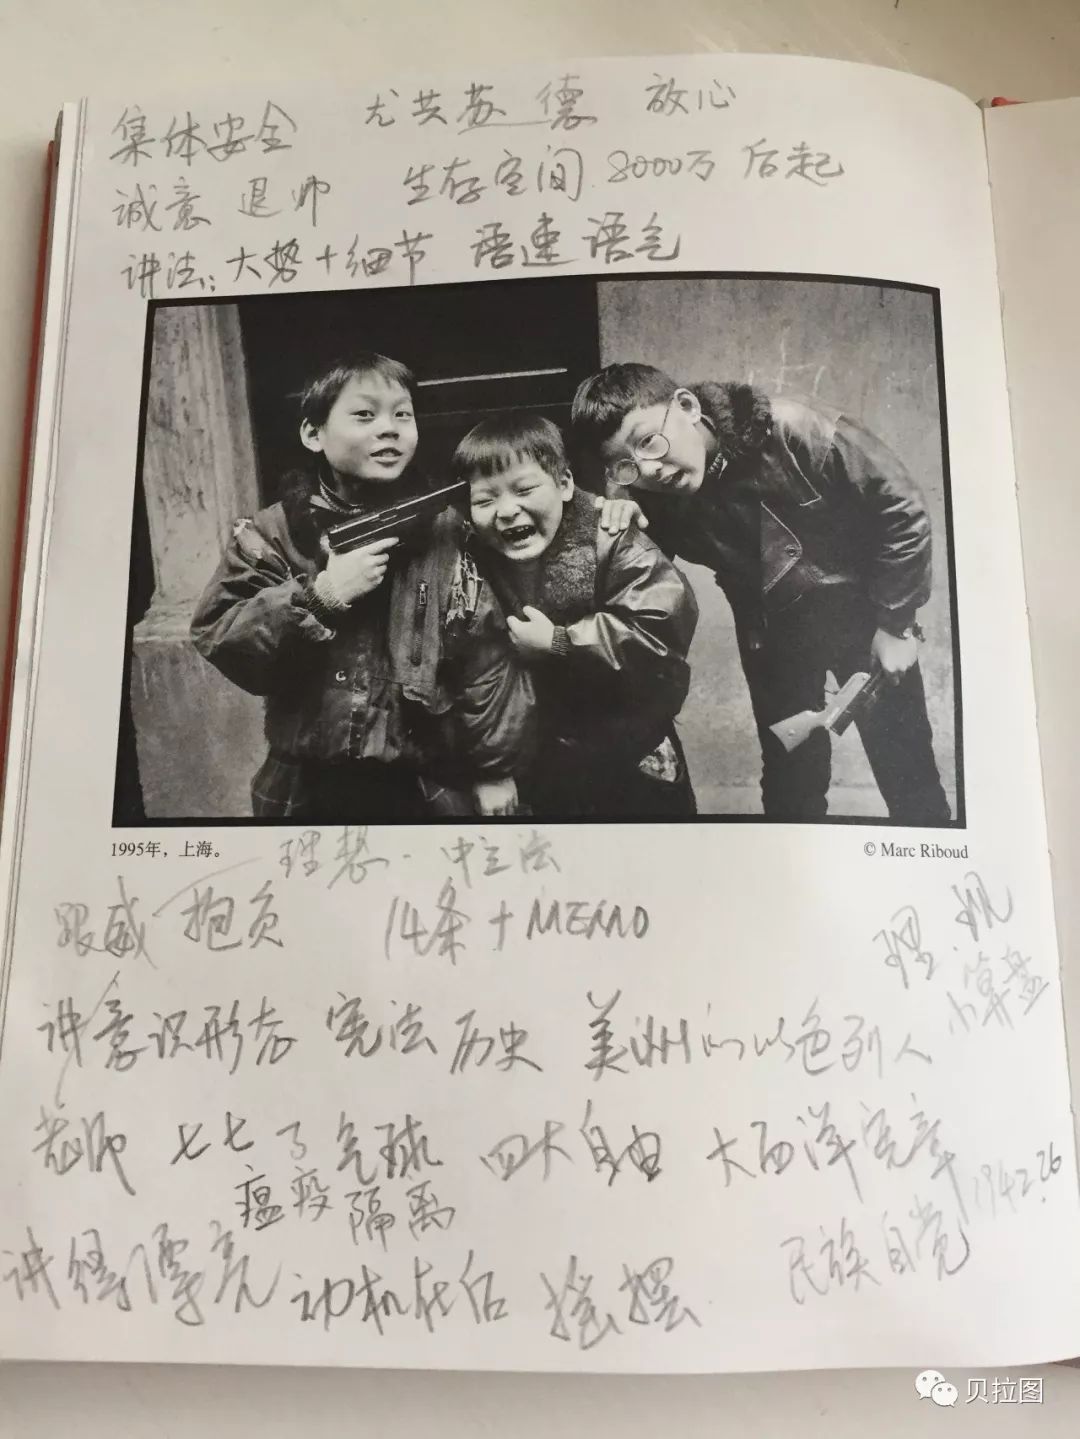 集体安全 尤共苏 德 放心
诚意 退帅 生存空间 8000万 后起
讲法：大势+细节 语速语气
1995年，上海。
© Marc Riboud
理想·中立法
抱负 14条+MEMO
理·规
小算盘
讲意识形态 宪法 历史 美洲的以色列人
老师 七七了 气球 四大自由 大西洋宪章
瘟疫 隔离
1942.26
讲得漂亮 动机在后 摇摆
民族自觉
贝拉图